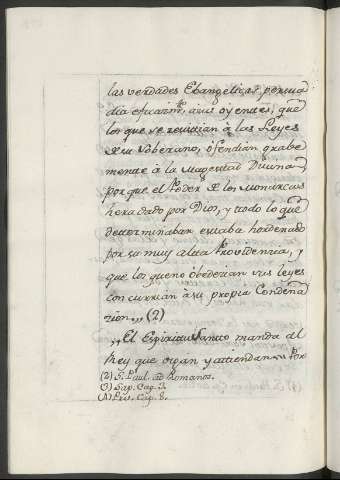 las verdades Ebangelicas persua
dia eficazmte, a sus oyentes, que
los que se resistian à las Leyes
de su Soberano, ofendian grabe
mente à la Magestad Divina
porque el Poder de los Monarcas
hera dado por Dios, y todo lo que
determinaban estaba hordenado
por su muy alta Providencia, y
que los que no obedezian sus leyes
concurrian à su propia Condena
zion,,, (2)
,,El Espiritu Santo manda al
Rey que oigan y atiendan su Por
(2) S. Paul. ad Romanos.
(3) Sap. Cap. 3.
Cap. 8.